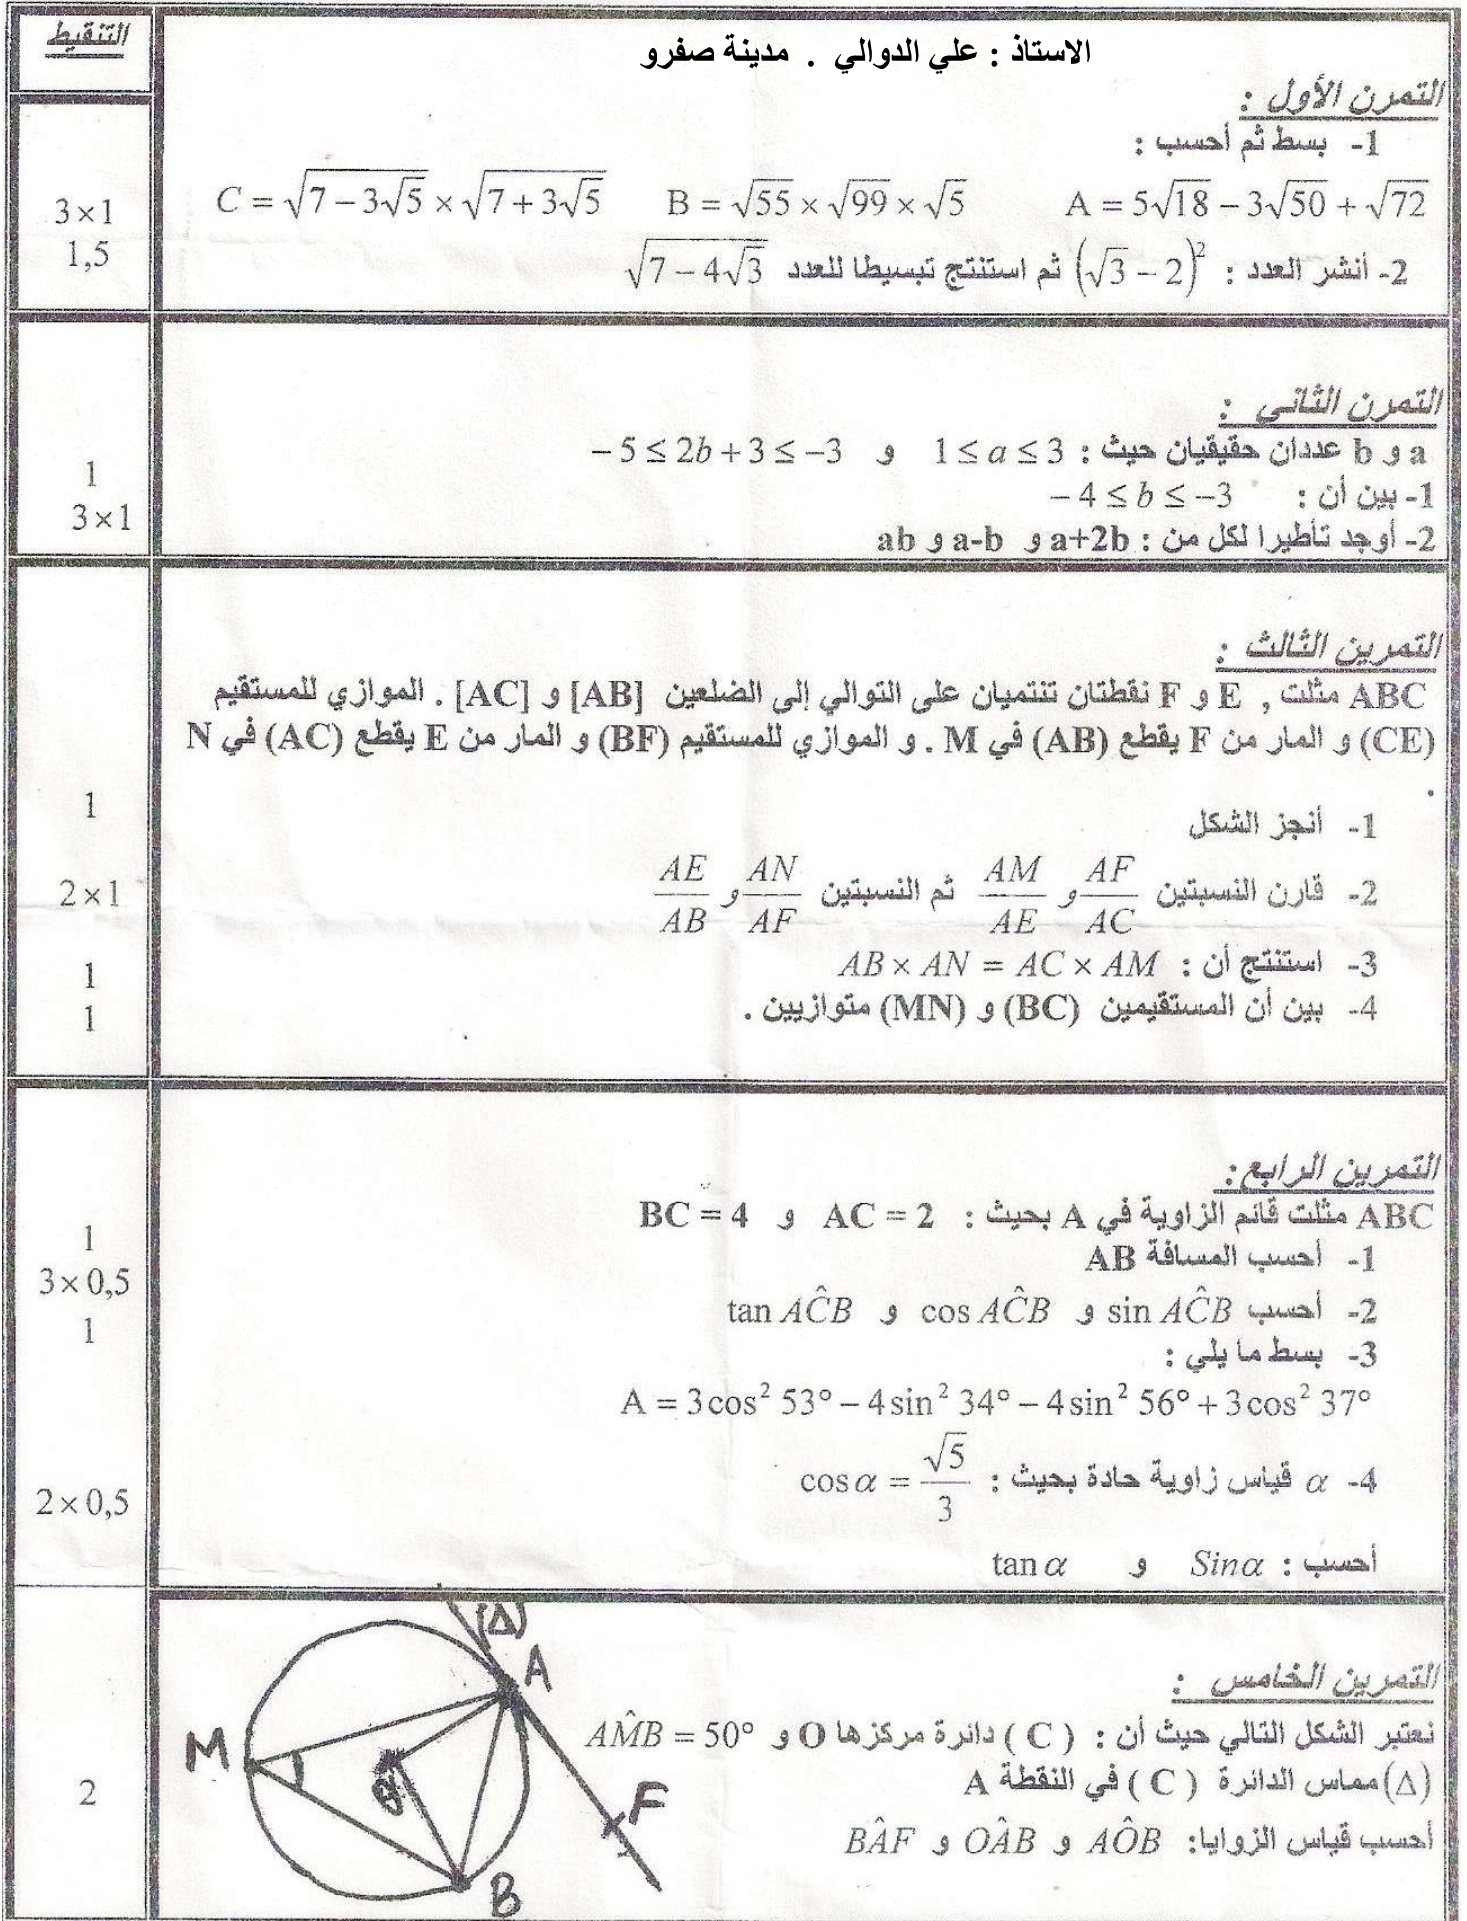 التنقيط
الاستاذ : علي الدوالي . مدينة صفرو
التمرن الأول :
1- بسط ثم أحسب :
3×1
A = 5√18 − 3√50 + √72    B = √55 × √99 × √5    C = √(7 − 3√5) × √(7 + 3√5)
1,5
2- أنشر العدد : (√3 − 2)² ثم استنتج تبسيطا للعدد √(7 − 4√3)
التمرن الثاني :
a و b عددان حقيقيان حيث : 1 ≤ a ≤ 3 و −5 ≤ 2b + 3 ≤ −3
1
1- بين أن : −4 ≤ b ≤ −3
3×1
2- أوجد تأطيرا لكل من : a+2b و a-b و ab
التمرين الثالث :
ABC مثلت , E و F نقطتان تنتميان على التوالي إلى الضلعين [AB] و [AC] . الموازي للمستقيم
(CE) و المار من F يقطع (AB) في M . و الموازي للمستقيم (BF) و المار من E يقطع (AC) في N
.
1
1- أنجز الشكل
2×1
2- قارن النسبتين AF/AC و AM/AE ثم النسبتين AN/AF و AE/AB
1
3- استنتج أن : AB × AN = AC × AM
1
4- بين أن المستقيمين (BC) و (MN) متوازيين .
التمرين الرابع :
ABC مثلت قائم الزاوية في A بحيث : AC = 2 و BC = 4
1
1- أحسب المسافة AB
3×0,5
2- أحسب sin AĈB و cos AĈB و tan AĈB
1
3- بسط ما يلي :
A = 3cos² 53° − 4sin² 34° − 4sin² 56° + 3cos² 37°
2×0,5
4- α قياس زاوية حادة بحيث : cos α = √5/3
أحسب : Sinα و tan α
التمرين الخامس :
نعتبر الشكل التالي حيث أن : ( C ) دائرة مركزها O و AM̂B = 50°
2
(Δ) مماس الدائرة ( C ) في النقطة A
أحسب قياس الزوايا: AÔB و OÂB و BÂF
(Δ)
A
M
O
F
B